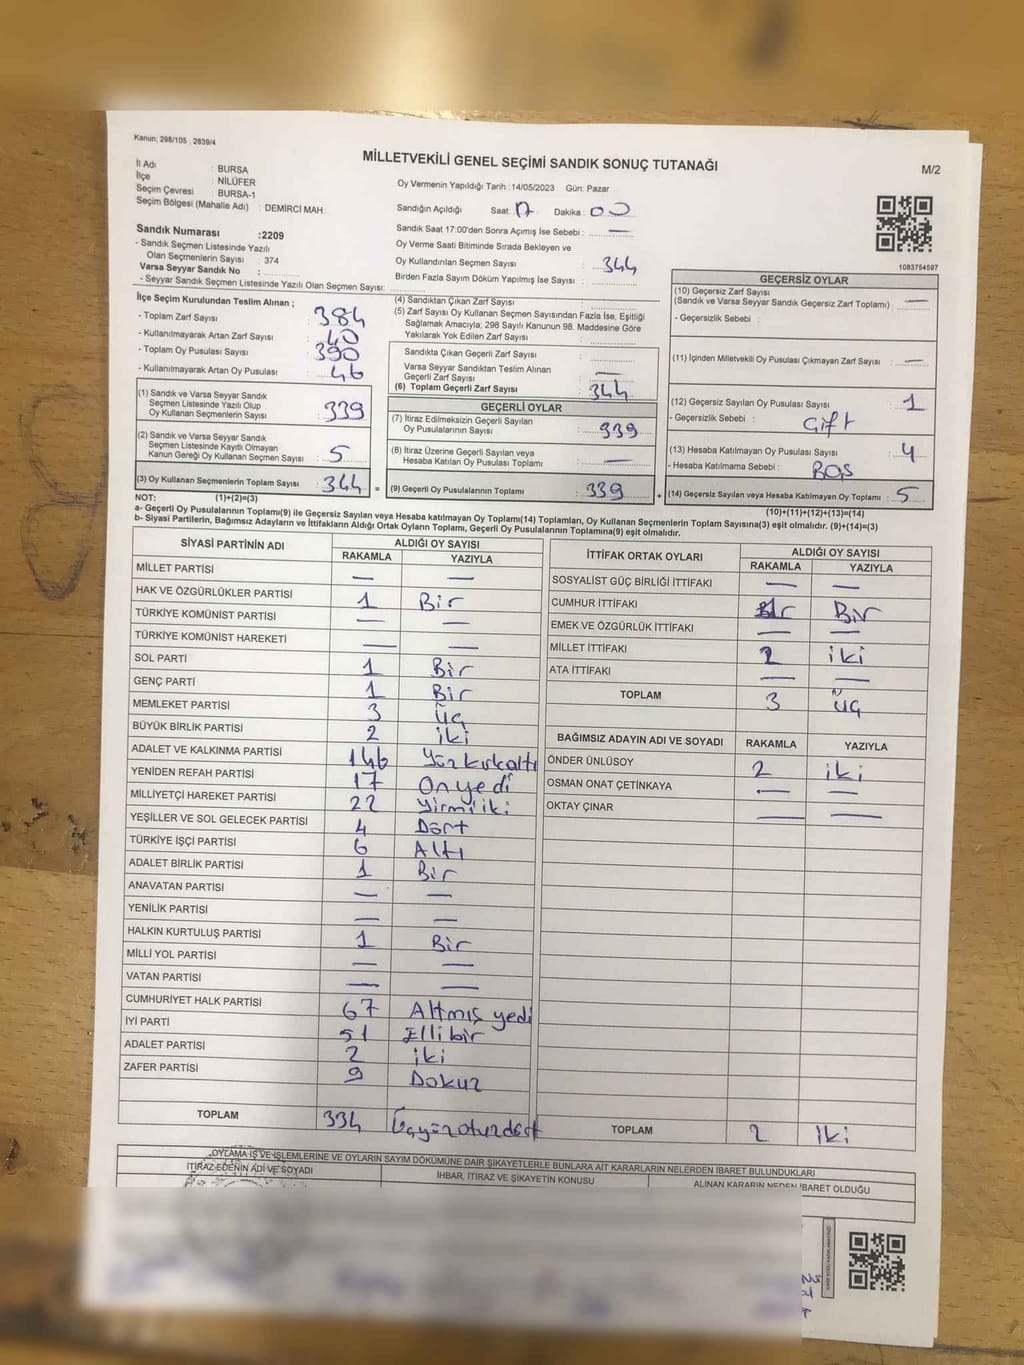 Kanun; 298/105 , 2839/4
MİLLETVEKİLİ GENEL SEÇİMİ SANDIK SONUÇ TUTANAĞI
M/2
İl Adı : BURSA
İlçe : NİLÜFER
Seçim Çevresi : BURSA-1
Seçim Bölgesi (Mahalle Adı) : DEMİRCİ MAH.
Oy Vermenin Yapıldığı Tarih :14/05/2023 Gün: Pazar
Sandığın Açıldığı Saat: 17 Dakika : 00
Sandık Saat 17:00'den Sonra Açımış İse Sebebi : —
Oy Verme Saati Bitiminde Sırada Bekleyen ve
Oy Kullandırılan Seçmen Sayısı 344
Birden Fazla Sayım Döküm Yapılmış İse Sayısı :
1083754597
Sandık Numarası :2209
- Sandık Seçmen Listesinde Yazılı
Olan Seçmenlerin Sayısı : 374
Varsa Seyyar Sandık No :
- Seyyar Sandık Seçmen Listesinde Yazılı Olan Seçmen Sayısı:
İlçe Seçim Kurulundan Teslim Alınan ;
- Toplam Zarf Sayısı : 384
- Kullanılmayarak Artan Zarf Sayısı : 40
- Toplam Oy Pusulası Sayısı : 390
- Kullanılmayarak Artan Oy Pusulası : 46
(1) Sandık ve Varsa Seyyar Sandık
Seçmen Listesinde Yazılı Olup
Oy Kullanan Seçmenlerin Sayısı : 339
(2) Sandık ve Varsa Seyyar Sandık
Seçmen Listesinde Kayıtlı Olmayan
Kanun Gereği Oy Kullanan Seçmen Sayısı : 5
(3) Oy Kullanan Seçmenlerin Toplam Sayısı : 344 =
(4) Sandıktan Çıkan Zarf Sayısı :
(5) Zarf Sayısı Oy Kullanan Seçmen Sayısından Fazla İse, Eşitliği
Sağlamak Amacıyla; 298 Sayılı Kanunun 98. Maddesine Göre
Yakılarak Yok Edilen Zarf Sayısı :
Sandıkta Çıkan Geçerli Zarf Sayısı :
Varsa Seyyar Sandıktan Teslim Alınan
Geçerli Zarf Sayısı : —
(6) Toplam Geçerli Zarf Sayısı : 344
GEÇERLİ OYLAR
(7) İtiraz Edilmeksizin Geçerli Sayılan
Oy Pusulalarının Sayısı : 339
(8) İtiraz Üzerine Geçerli Sayılan veya
Hesaba Katılan Oy Pusulası Toplamı : —
(9) Geçerli Oy Pusulalarının Toplamı : 339 +
GEÇERSİZ OYLAR
(10) Geçersiz Zarf Sayısı
(Sandık ve Varsa Seyyar Sandık Geçersiz Zarf Toplamı) : —
- Geçersizlik Sebebi :
(11) İçinden Milletvekili Oy Pusulası Çıkmayan Zarf Sayısı : —
(12) Geçersiz Sayılan Oy Pusulası Sayısı : 1
- Geçersizlik Sebebi : Çift
(13) Hesaba Katılmayan Oy Pusulası Sayısı : 4
- Hesaba Katılmama Sebebi : BOŞ
(14) Geçersiz Sayılan veya Hesaba Katılmayan Oy Toplamı : 5
NOT: (1)+(2)=(3)
(10)+(11)+(12)+(13)=(14)
a- Geçerli Oy Pusulalarının Toplamı(9) ile Geçersiz Sayılan veya Hesaba katılmayan Oy Toplamı(14) Toplamları, Oy Kullanan Seçmenlerin Toplam Sayısına(3) eşit olmalıdır. (9)+(14)=(3)
b- Siyasi Partilerin, Bağımsız Adayların ve İttifakların Aldığı Ortak Oyların Toplamı, Geçerli Oy Pusulalarının Toplamına(9) eşit olmalıdır.
SİYASİ PARTİNİN ADI ALDIĞI OY SAYISI
RAKAMLA YAZIYLA
MİLLET PARTİSİ — —
HAK VE ÖZGÜRLÜKLER PARTİSİ 1 Bir
TÜRKİYE KOMÜNİST PARTİSİ — —
TÜRKİYE KOMÜNİST HAREKETİ — —
SOL PARTİ 1 Bir
GENÇ PARTİ 1 Bir
MEMLEKET PARTİSİ 3 üç
BÜYÜK BİRLİK PARTİSİ 2 iki
ADALET VE KALKINMA PARTİSİ 146 Yüzkırkaltı
YENİDEN REFAH PARTİSİ 17 Onyedi
MİLLİYETÇİ HAREKET PARTİSİ 22 Yirmiiki
YEŞİLLER VE SOL GELECEK PARTİSİ 4 Dört
TÜRKİYE İŞÇİ PARTİSİ 6 Altı
ADALET BİRLİK PARTİSİ 1 Bir
ANAVATAN PARTİSİ — —
YENİLİK PARTİSİ — —
HALKIN KURTULUŞ PARTİSİ 1 Bir
MİLLİ YOL PARTİSİ — —
VATAN PARTİSİ — —
CUMHURİYET HALK PARTİSİ 67 Altmış yedi
İYİ PARTİ 51 Ellibir
ADALET PARTİSİ 2 iki
ZAFER PARTİSİ 9 Dokuz
TOPLAM 334 Üçyüzotuzdört
İTTİFAK ORTAK OYLARI ALDIĞI OY SAYISI
RAKAMLA YAZIYLA
SOSYALİST GÜÇ BİRLİĞİ İTTİFAKI — —
CUMHUR İTTİFAKI 1 Bir
EMEK VE ÖZGÜRLÜK İTTİFAKI — —
MİLLET İTTİFAKI 2 iki
ATA İTTİFAKI — —
TOPLAM 3 üç
BAĞIMSIZ ADAYIN ADI VE SOYADI RAKAMLA YAZIYLA
ÖNDER ÜNLÜSOY 2 iki
OSMAN ONAT ÇETİNKAYA — —
OKTAY ÇINAR — —
TOPLAM 2 iki
OYLAMA İŞ VE İŞLEMLERİNE VE OYLARIN SAYIM DÖKÜMÜNE DAİR ŞİKAYETLERLE BUNLARA AİT KARARLARIN NELERDEN İBARET BULUNDUKLARI
İTİRAZ EDENİN ADI VE SOYADI İHBAR, İTİRAZ VE ŞİKAYETİN KONUSU ALINAN KARARIN NEDEN İBARET OLDUĞU